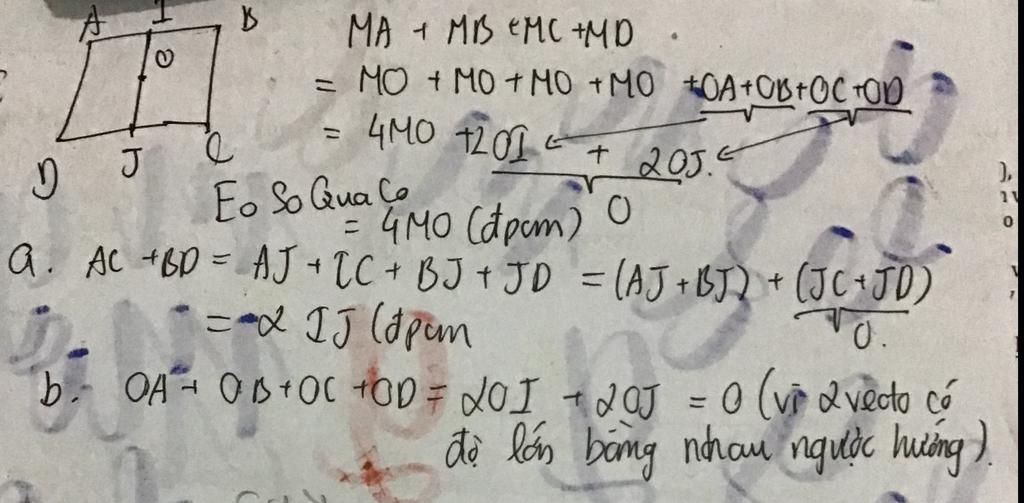 A I B
O
D J C
MA + MB + MC + MD
= MO + MO + MO + MO + OA + OB + OC + OD
= 4MO + 2OI + 2OJ.
O
Eo So Qua Co
= 4MO (đpcm)
a. AC + BD = AJ + JC + BJ + JD = (AJ + BJ) + (JC + JD)
O.
= 2 IJ (đpcm
b. OA + OB + OC + OD = 2OI + 2OJ = 0 (vì 2 vecto có
độ lớn bằng nhau ngược hướng).